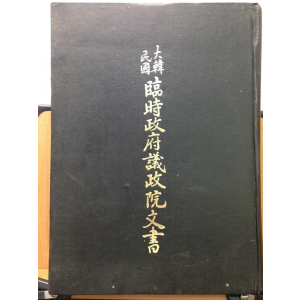 大韓
民國
臨時政府議政院文書